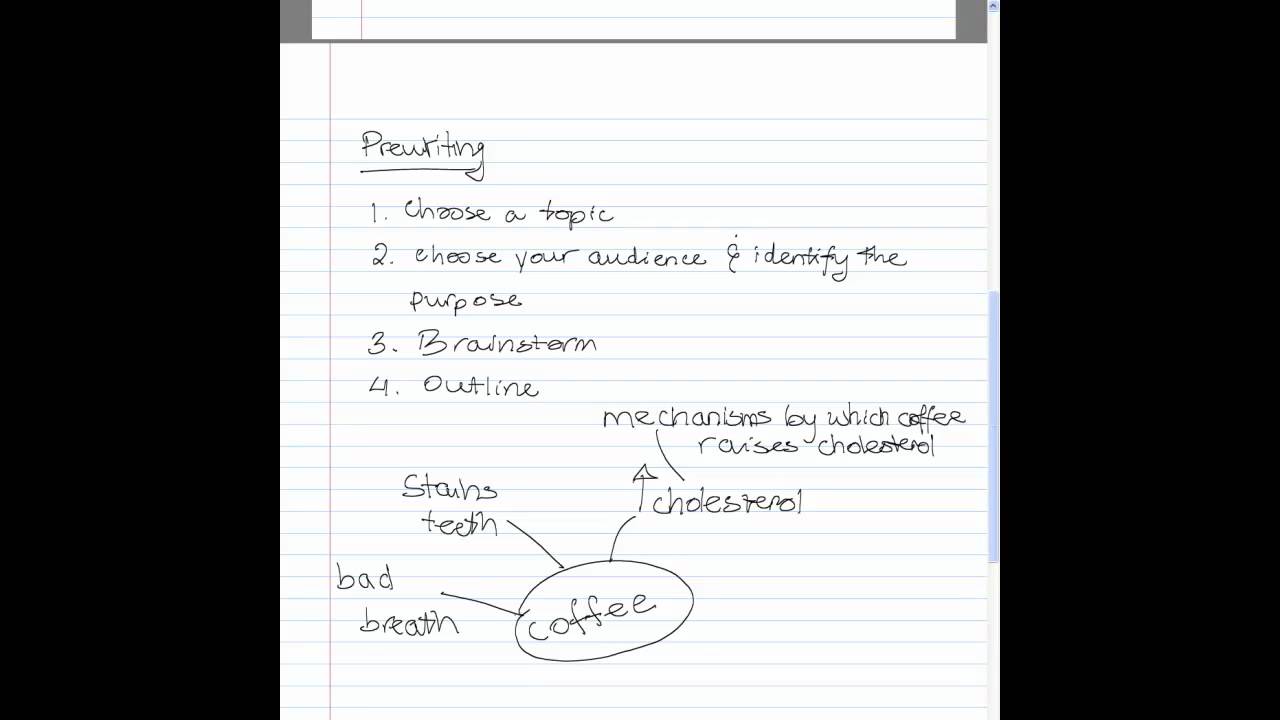 Prewriting
1. Choose a topic
2. choose your audience & identify the
purpose
3. Brainstorm
4. Outline
mechanisms by which coffee
raises cholesterol
Stains
teeth
↑ cholesterol
bad
breath
coffee